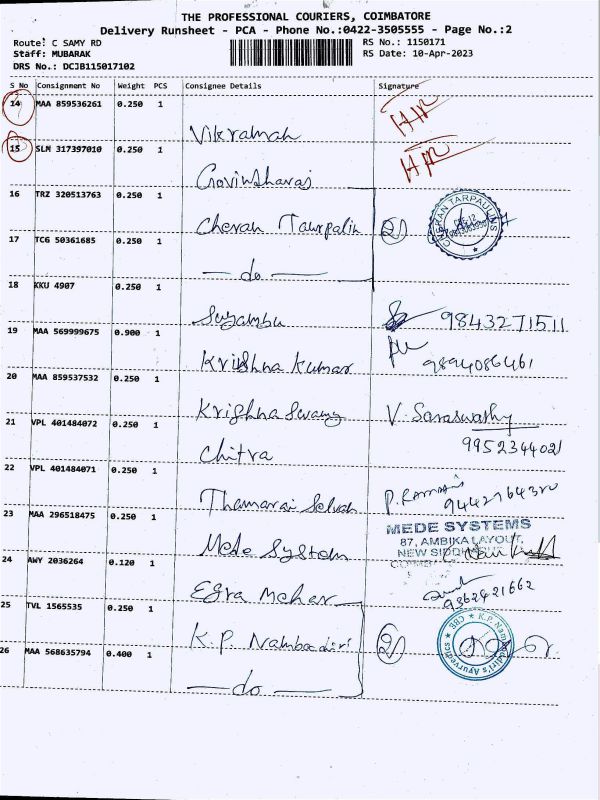 THE PROFESSIONAL COURIERS, COIMBATORE
Delivery Runsheet - PCA - Phone No.:0422-3505555 - Page No.:2
Route: C SAMY RD
RS No.: 1150171
Staff: MUBARAK
RS Date: 10-Apr-2023
DRS No.: DCJB115017102
S No Consignment No Weight PCS Consignee Details Signature
14 MAA 859536261 0.250 1
Vikraman
15 SLM 317397010 0.250 1
Govindharaj
16 TRZ 320513763 0.250 1
Cheran Taurpalin 2
CHERAN TARPAULINS
17 TCG 50361685 0.250 1
— do —
18 KKU 4907 0.250 1
Suyambu 9843271511
19 MAA 569999675 0.900 1
Krishna Kumar 9894086461
20 MAA 859537532 0.250 1
Krishna Swamy V. Saraswathy
21 VPL 401484072 0.250 1
Chitra 9952344021
22 VPL 401484071 0.250 1
Thamarai Selvan P. Ramani
23 MAA 296518475 0.250 1
MEDE SYSTEMS
87, AMBIKA LAYOUT,
NEW
Mede System
24 AWY 2036264 0.120 1
Esra Mohan 9362421662
25 TVL 1565535 0.250 1
K.P. Namboodiri 2
CBE ★ K.P. Namboodiri's Ayurvedics
26 MAA 568635794 0.400 1
— do —